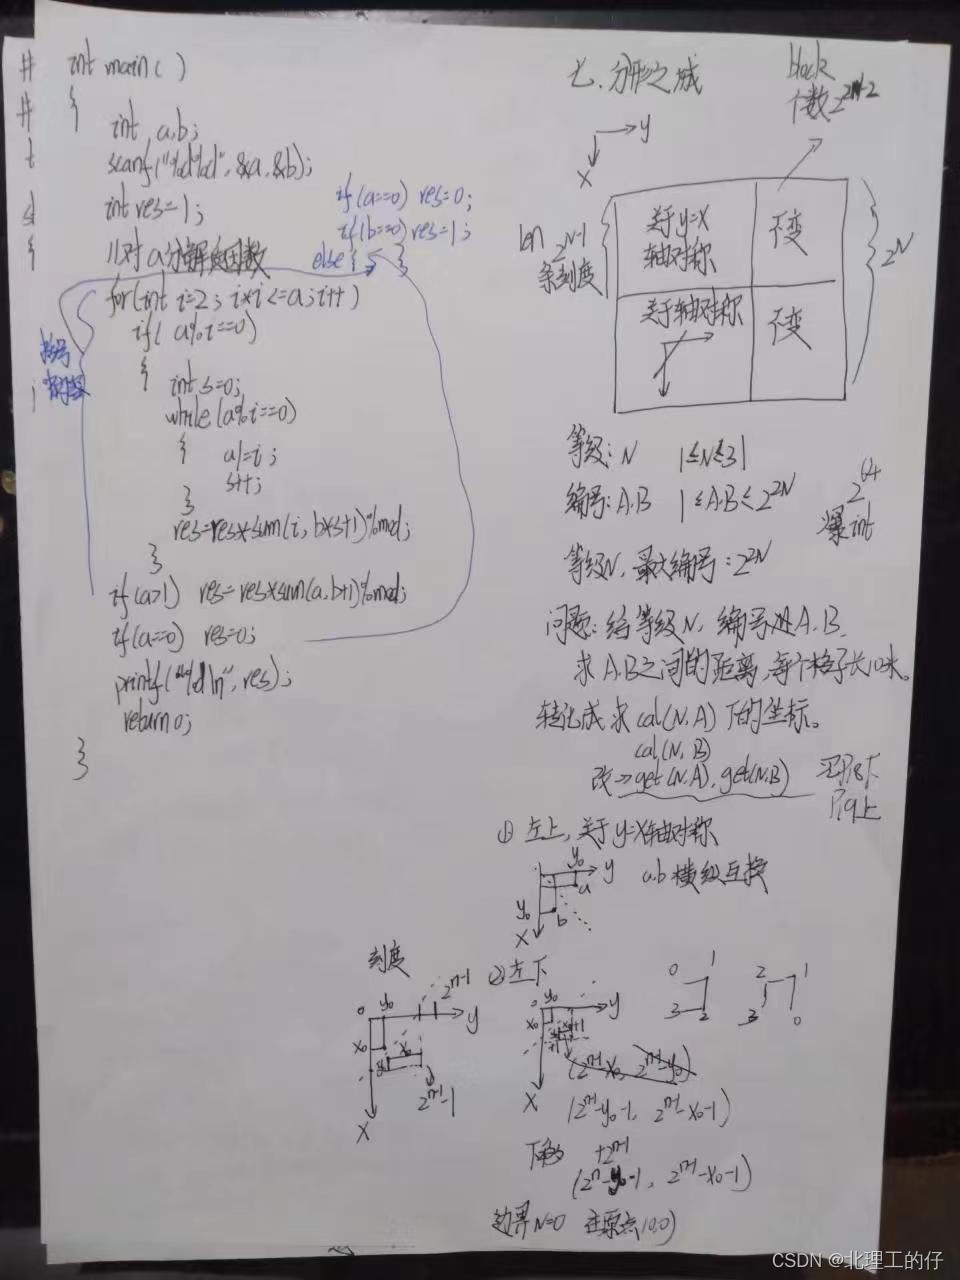 #
#
int main( )
{
int a,b;
scanf("%d%d", &a,&b);
int res=1;
//对a分解质因数
if(a==0) res=0;
if(b==0) res=1;
else { }
for(int i=2; i*i<=a; i++)
if( a%i==0)
{
int s=0;
while(a%i==0)
{
a/=i;
s++;
}
res=res*sum(i, b*s+1)%mod;
}
if(a>1) res=res*sum(a,b+1)%mod;
if(a==0) res=0;
printf("%d\n", res);
return 0;
}
七.分形之城
block
个数
y
x
关于y=x
轴对称
不变
len 2^N-1
条刻度
2^N
关于轴对称
不变
等级: N 1≤N≤31
编号: A.B 1≤A.B≤2^2N
爆int
等级N, 最大编号: 2^2N
问题: 给等级N, 编号 A.B.
求A.B之间的距离, 每个格子长10米。
转化成求cal(N,A)下的坐标。
cal(N,B)
改→get(N,A), get(N,B)
① 左上, 关于y=x轴对称
y0 y
a
y0
b
x
a.b横纵互换
刻度
0 y0 2^n-1
y
x0 x0
y0
2^n-1 -1
x
②左下
0 y0
y
x0
x
0 1
3 2
2 1
3 0
(2^n-1-x0, 2^n-1-y0)
(2^n-1-y0-1, 2^n-1-x0-1)
下移 +2^n-1
(2^n-y0-1, 2^n-1-x0-1)
边界N=0 在原点(0,0)
CSDN @北理工的仔